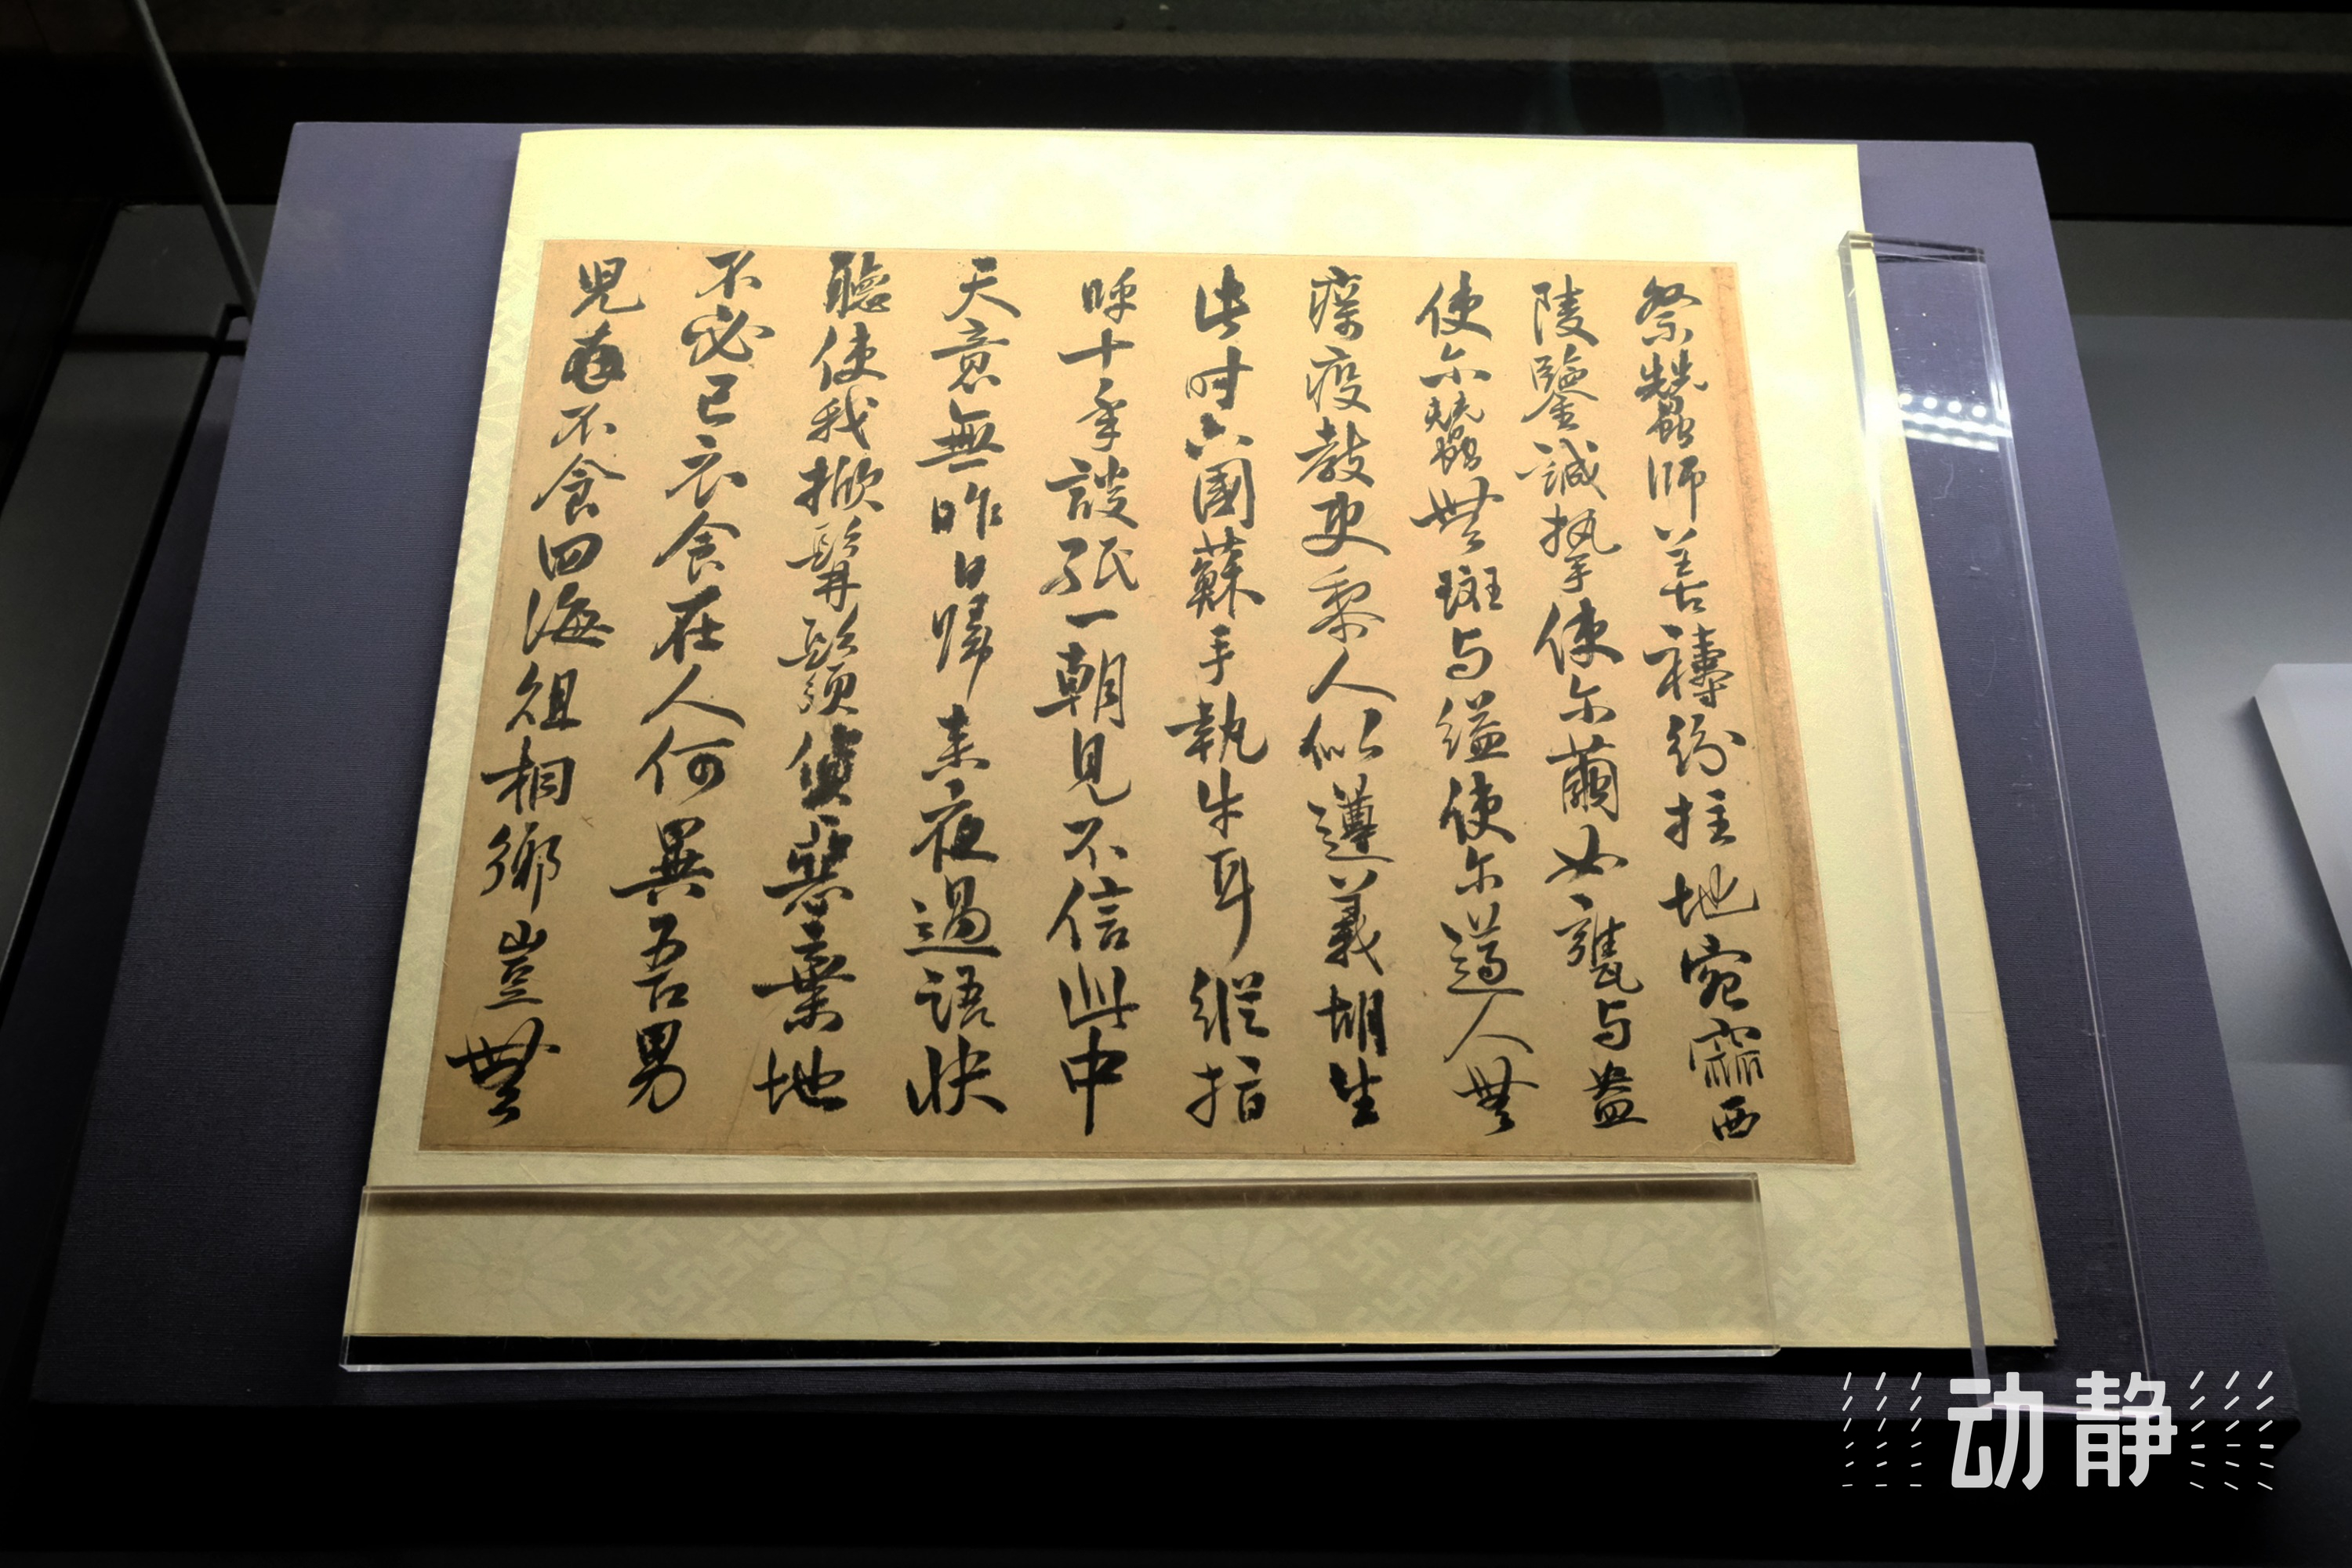 祭蠶師善禱紛拄地宛窳西
陵鑒誠摯使尔繭如甕与盎
使尔蠶無斑与縊使尔道人無
瘵疫教吏黎人似遵義胡生
此时六國蘇手執牛耳縱指
呼十年談紙一朝見不信此中
天意無昨日歸来夜過語快
聽使我掀髯鬚價惡棄地
不必已衣食在人何異吾男
児不食四海徂相鄉豈無
动静